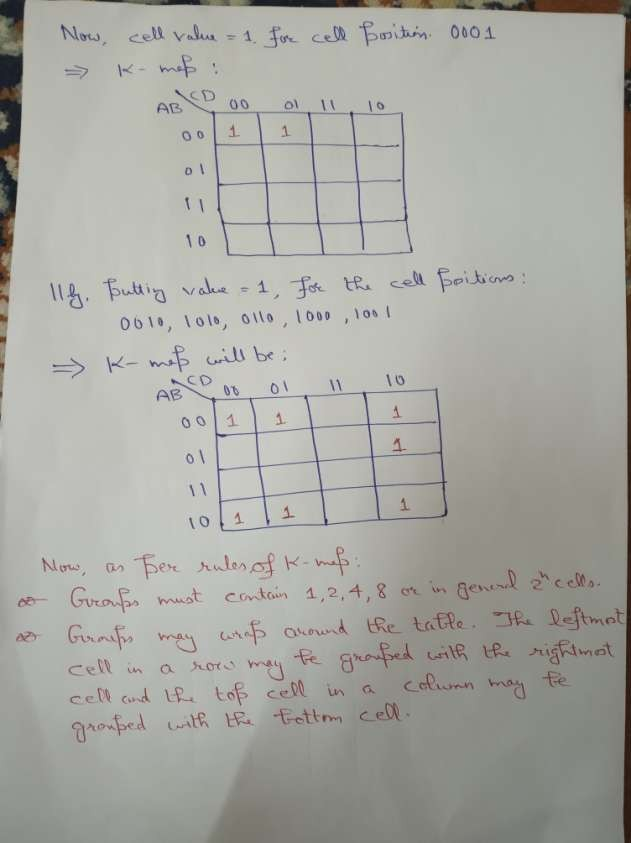 Now, cell value = 1, for cell position. 0001
⇒ K-map :
AB\CD 00 01 11 10
00 1 1
01
11
10
lly. Putting value = 1, for the cell positions:
0010, 1010, 0110, 1000, 1001
⇒ K-map will be:
AB\CD 00 01 11 10
00 1 1 1
01 1
11
10 1 1 1
Now, as per rules of K-map:
Groups must contain 1, 2, 4, 8 or in general 2ⁿ cells.
Groups may wrap around the table. The leftmost
cell in a row may be grouped with the rightmost
cell and the top cell in a column may be
grouped with the bottom cell.